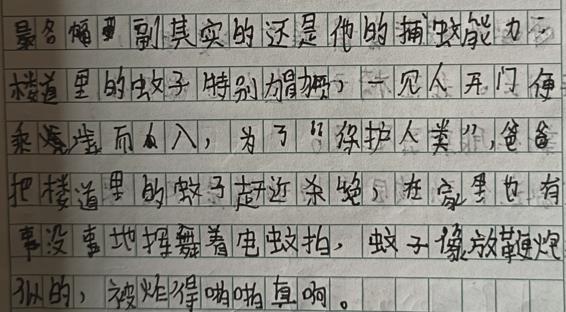 最名副其实的还是他的捕蚊能力。
楼道里的蚊子特别猖獗，一见人开门便
乘虚而入，为了“保护人类”，爸爸
把楼道里的蚊子赶近杀绝，在家里也有
事没事地挥舞着电蚊拍，蚊子像放鞭炮
似的，被炸得啪啪直响。